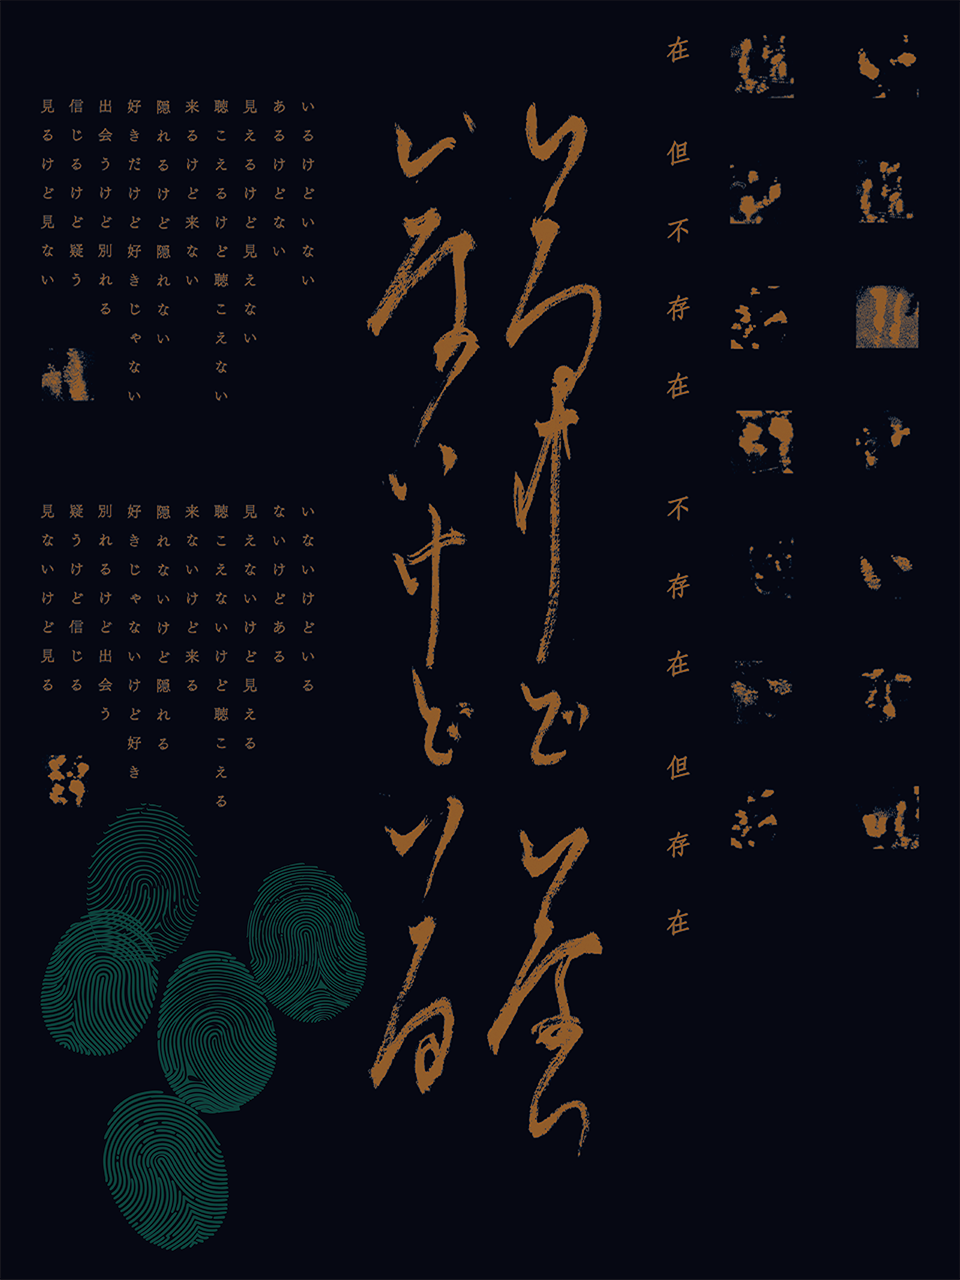 在 但不存在 不存在 但存在
いるけどいない
いないけどいる
いるけどいない
あるけどない
見えるけど見えない
聴こえるけど聴こえない
来るけど来ない
隠れるけど隠れない
好きだけど好きじゃない
出会うけど別れる
信じるけど疑う
見るけど見ない
いないけどいる
ないけどある
見えないけど見える
聴こえないけど聴こえる
来ないけど来る
隠れないけど隠れる
好きじゃないけど好き
別れるけど出会う
疑うけど信じる
見ないけど見る